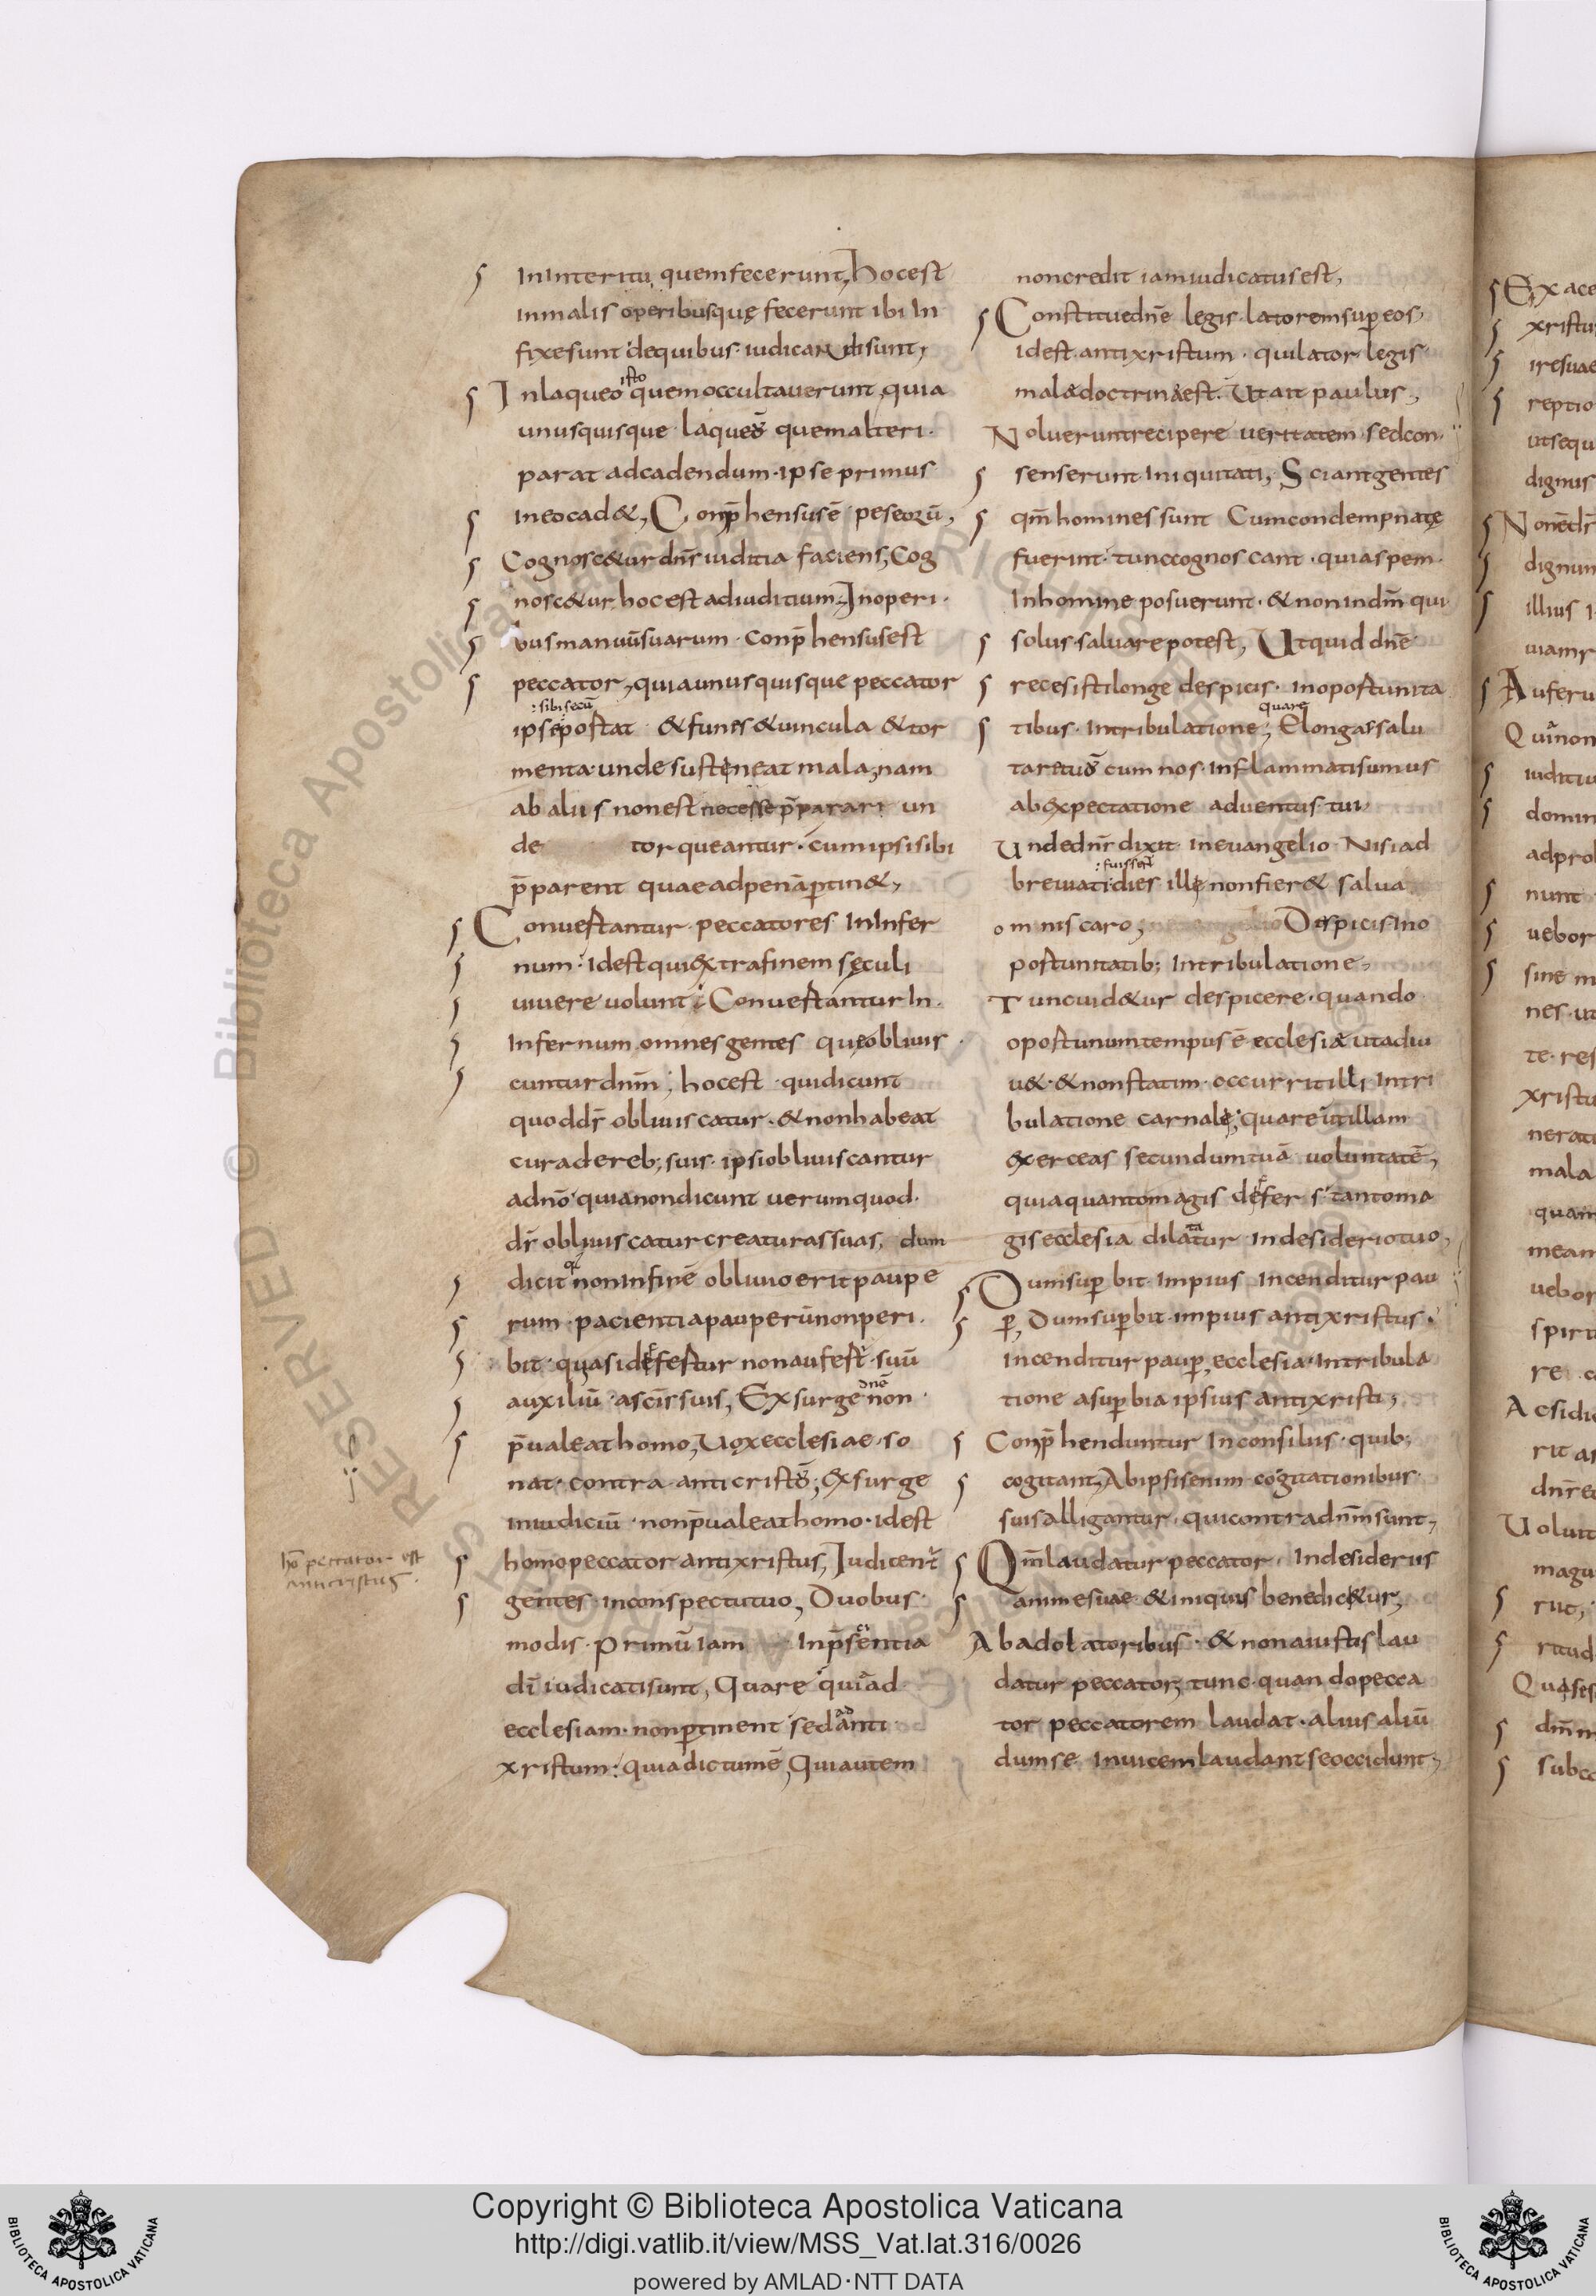 InInteritu quemfecerunt, hocest
inmalis operibusquę fecerunt ibi In
fixesunt dequibus iudicaNdisunt,
Inlaqueo isto quemoccultauerunt, quia
unusquisque laqueū quemalteri.
parat adcadendum. ipse primus
ineocad&, Conp̄hensusē peseorū,
Cognosc&ur dn̄s iuditia faciens, Cog
nosc&ur hocest adiuditium, Inoperi.
busmanuūsuarum. conp̄hensusest
peccator, quiaunusquisque peccator
:sibisecū
ipse portat &funes &uincula &tor
menta unde sustineat mala, nam
ab aliis nonest necesse p̄parari un
de torqueantur. cumipsisibi
p̄parent quaeadpenāptin&,
Conuertantur peccatores InInfer
num. idestqui&xtrafinem sęculi
uiuere uolunt; Conuertantur In.
Infernum omnesgentes quęobliuis
cunturdnm̄; hocest quidicunt
quodds̄ obliuiscatur. &nonhabeat
curadereb; suis. ipsiobliuiscantur
adnō quianondicunt uerumquod.
ds̄ obliuiscaturcreaturassuas, dum
dicit qm̄ nonInfinē obliuioeritpaupe
rum. pacientiapauperūnonperi.
bit. quasidefertur nonaufert. suū
auxiliū. ascīssuis, Exsurge dnē non
p̄ualeathomo, Uoxecclesiae. so
nat. contra anticristū; exsurge
iniudiciū. nonp̄ualeathomo. idest
hō peccator est
anticristus.
homopeccator antixristus, Iudicent̄
gentes. inconspectutuo, Duobus
modis. Primū iam Inp̄sentia
dī iudicatisunt, Quare quia ad
ecclesiam. nonptinent sed ad anti
xristum: quiadictumē, Quiautem
noncredit iamiudicatusest,
Constituednē legis latoremsup̄eos,
idest. antixristum. quilator legis
malaedoctrinaeest. Utait paulus,
Noluerunt recipere ueritatem sedcon.
senserunt Iniquitati, Sciantgentes
qm̄homines sunt Cumcondempnatę
fuerint. tunccognoscant. quiaspem.
Inhomine posuerunt. &nonindm̄ qui
solus saluarepotest, Utquid dnē
recesistilonge despicis. inoportunita
tibus. Intribulatione, quare Elongassalu
taretuū cum nos. inflammatisumus
ab&xpectatione aduentus tui
Undedn̄s dixit ineuangelio Nisiad
:fuissent
breuiati dies illę nonfier& salua
omniscaro, Despicis Ino
portunitatib; Intribulatione,
Tuncuid&ur despicere. quando
oportunumtempusē ecclesiae utadiu
u&. &nonstatim. occurritilli Intri
bulatione carnalę; quare utillam
&xerceas secundumtuā uoluntatē,
quiaquantomagis defers tantoma
gisecclesia dilatatur Indesideriotuo,
Dumsup̄bit. Impius Incenditurpau
p̄, Dumsup̄bit. impius antixristus.
Incenditurpaup̄, ecclesia. Intribula
tione asup̄bia ipsius antixristi,
Conp̄henduntur Inconsiliis. quib;
cogitant, Abipsisenim cogitationibus
suisalligantur. quicontradnm̄sunt,
Qm̄laudatur peccator. Indesideriis
animesuae &iniquus benedic&ur,
Abadolatoribus. &nonaiustislau
datur peccator, tunc quandopecca
tor peccatorem laudat. aliusaliū
dumse Inuicemlaudantseoccidunt,
Copyright © Biblioteca Apostolica Vaticana
http://digi.vatlib.it/view/MSS_Vat.lat.316/0026
powered by AMLAD·NTT DATA